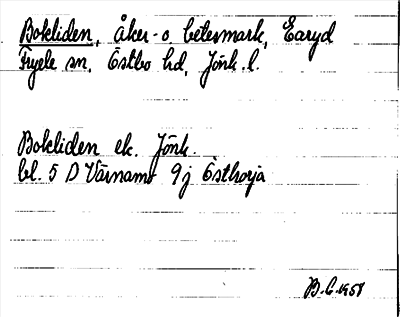 Bokliden, Åker- o. betesmark, Earyd
Fryele sn, Östbo hd, Jönk. l.
Bokliden ek. Jönk.
bl. 5 D Värnamo 9j Östhorja
B.G. 1958